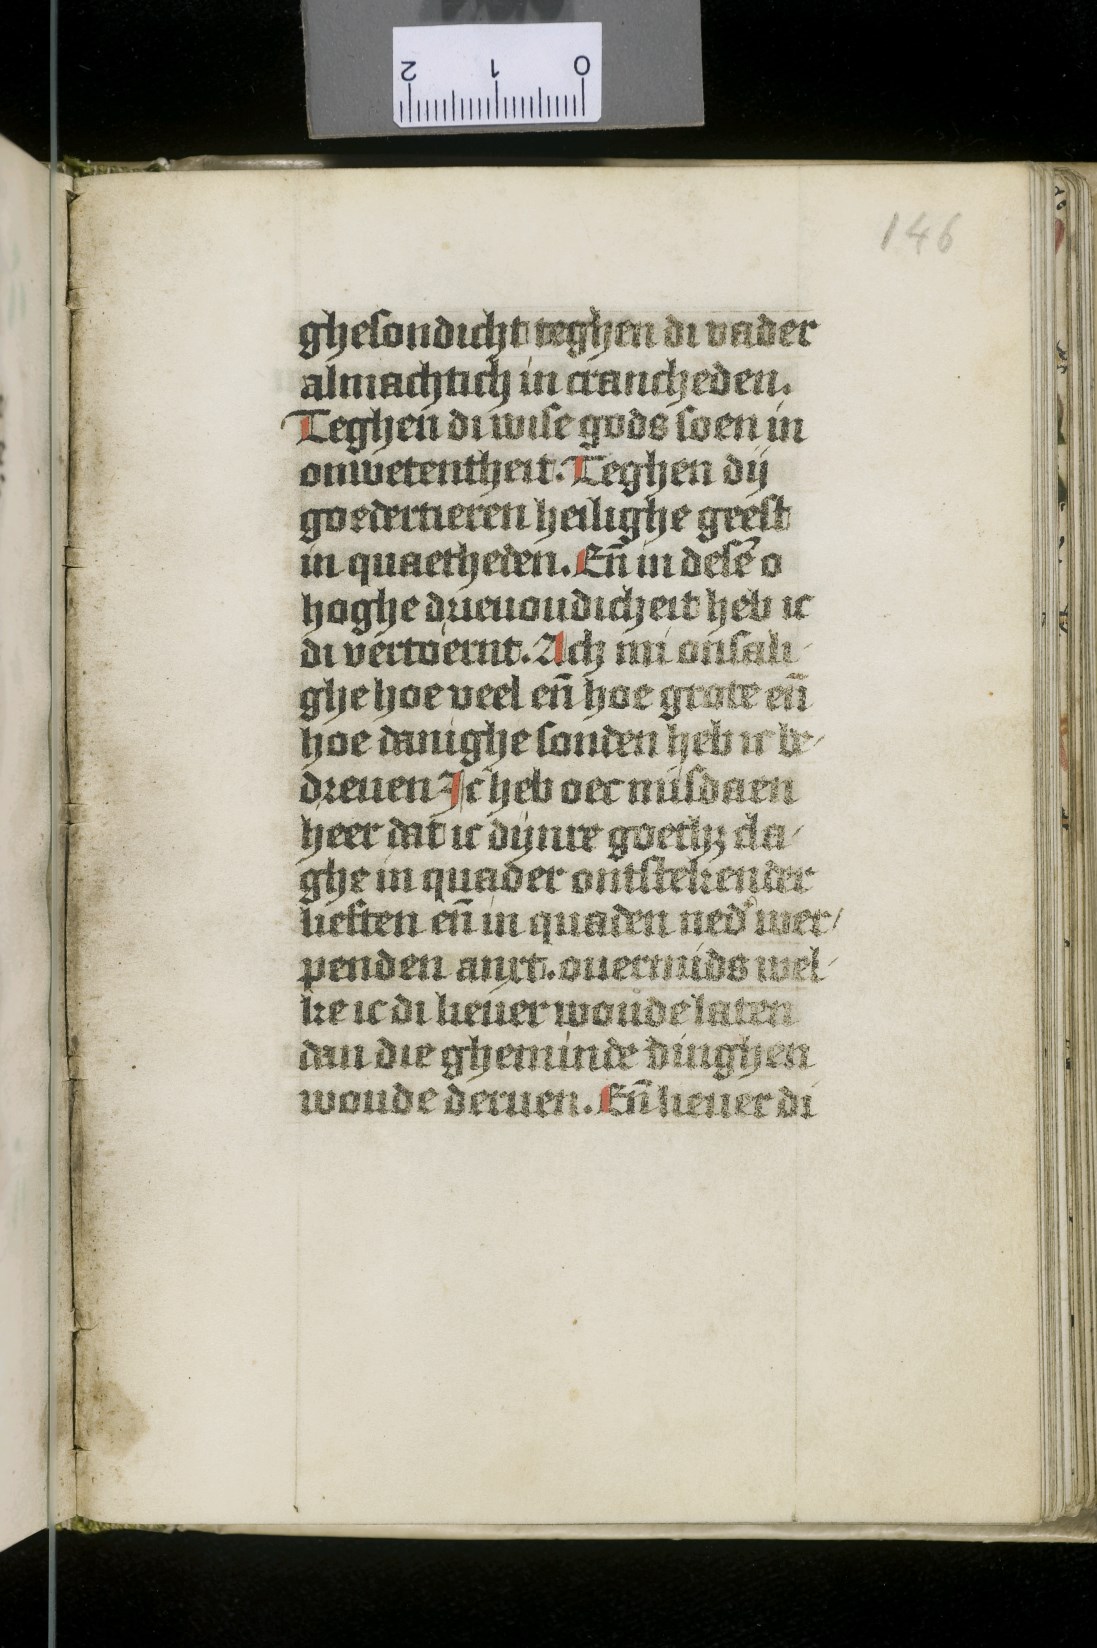 2 1 0
146
ghesondicht teghen di vader
almachtich in crancheden.
Teghen di wise gods soen in
onwetentheit. Teghen dij
goedertieren heilighe geest
in quaetheden. En̄ in dese o
hoghe drieuoudicheit heb ic
di vertoernt. Ach mi onsali-
ghe hoe veel en̄ hoe grote en̄
hoe danighe sonden heb ic be-
dreuen Ic heb oec misdaen
heer dat ic dijnre
ghe in quader ontstekender
liesten en̄ in quaden ned' wer-
penden anxt. ouermids wel-
ke ic di lieuer woude laten
dan die gheminde dinghen
woude deruen. En̄ lieuer di